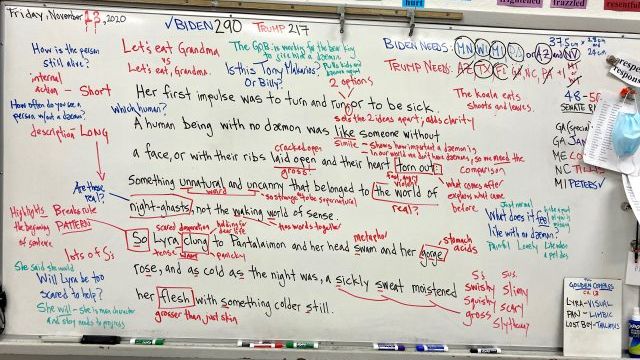 Friday, November 13, 2020
✓BIDEN 290 TRUMP 217
How is the person
still alive?
internal
action - Short
How often do you see a
person w/out a daemon?
description LONG
Let's eat Grandma
vs
Let's eat, Grandma.
Which human?
The GOB is working for the bear king
to give him a daemon
Is this Tony Makarios?
Or Billy?
2 options
BIDEN NEEDS: MN WI MI or AZ and NV
TRUMP NEED: AZ TX FL GA NC PA
Her first impulse was to turn and run, or to be sick.
sets the 2 ideas apart, adds clarity
The koala eats
shoots and leaves.
A human being with no dæmon was like someone without
simile - shows how important a daemon is
in our world we don't have daemons, so we need the
comparison
a face, or with their ribs laid open and their heart torn out:
cracked open
gross
Something unnatural and uncanny that belonged to the world of
weird
so strange to be supernatural
what comes after
explains what came
before
Are these
real?
night-ghasts, not the waking world of sense.
two words together
real?
Highlights
the beginning
of sentence
Breaks rule
PATTERN!
lots of S's
scared desperation
holding for
dear life
So Lyra clung to Pantalaimon and her head swam and her gorge
tense
panicky
metaphor
stomach
acids
rose, and as cold as the night was, a sickly sweat moistened
her flesh with something colder still.
grosser than just skin
She said she would
Will Lyra be too
scared to help?
She will - she is main character
and story needs to progress
Just normal
What does it feel
like with no daemon?
Painful Lonely
S's sus.
swishy Slimy
Squishy scary
gross Slytherin
48-50
SENATE
GA (special)
GA
ME
NC
MI PETERS✓
THE
GOLDEN COMPASS
CH 13
LYRA-VISUAL
PAN - LIMBIC
LOST BOY-THALAMUS